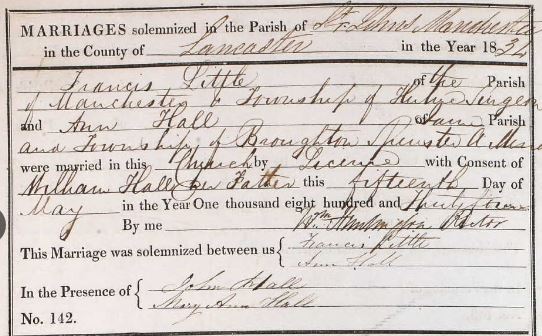 MARRIAGES solemnized in the Parish of St. Johns Manchester
in the County of Lancaster in the Year 183
Francis Little of the Parish
of Manchester & Township of Hulme Surgeon
and Ann Hall of same Parish
and Township of Broughton Spinster A Minor
were married in this Church by Licence with Consent of
William Hall her Father this fifteenth Day of
May in the Year One thousand eight hundred and
By me Wm Huntington Rector
This Marriage was solemnized between us { Francis Little
Ann Hall
In the Presence of { John Hall
Mary Ann Hall
No. 142.